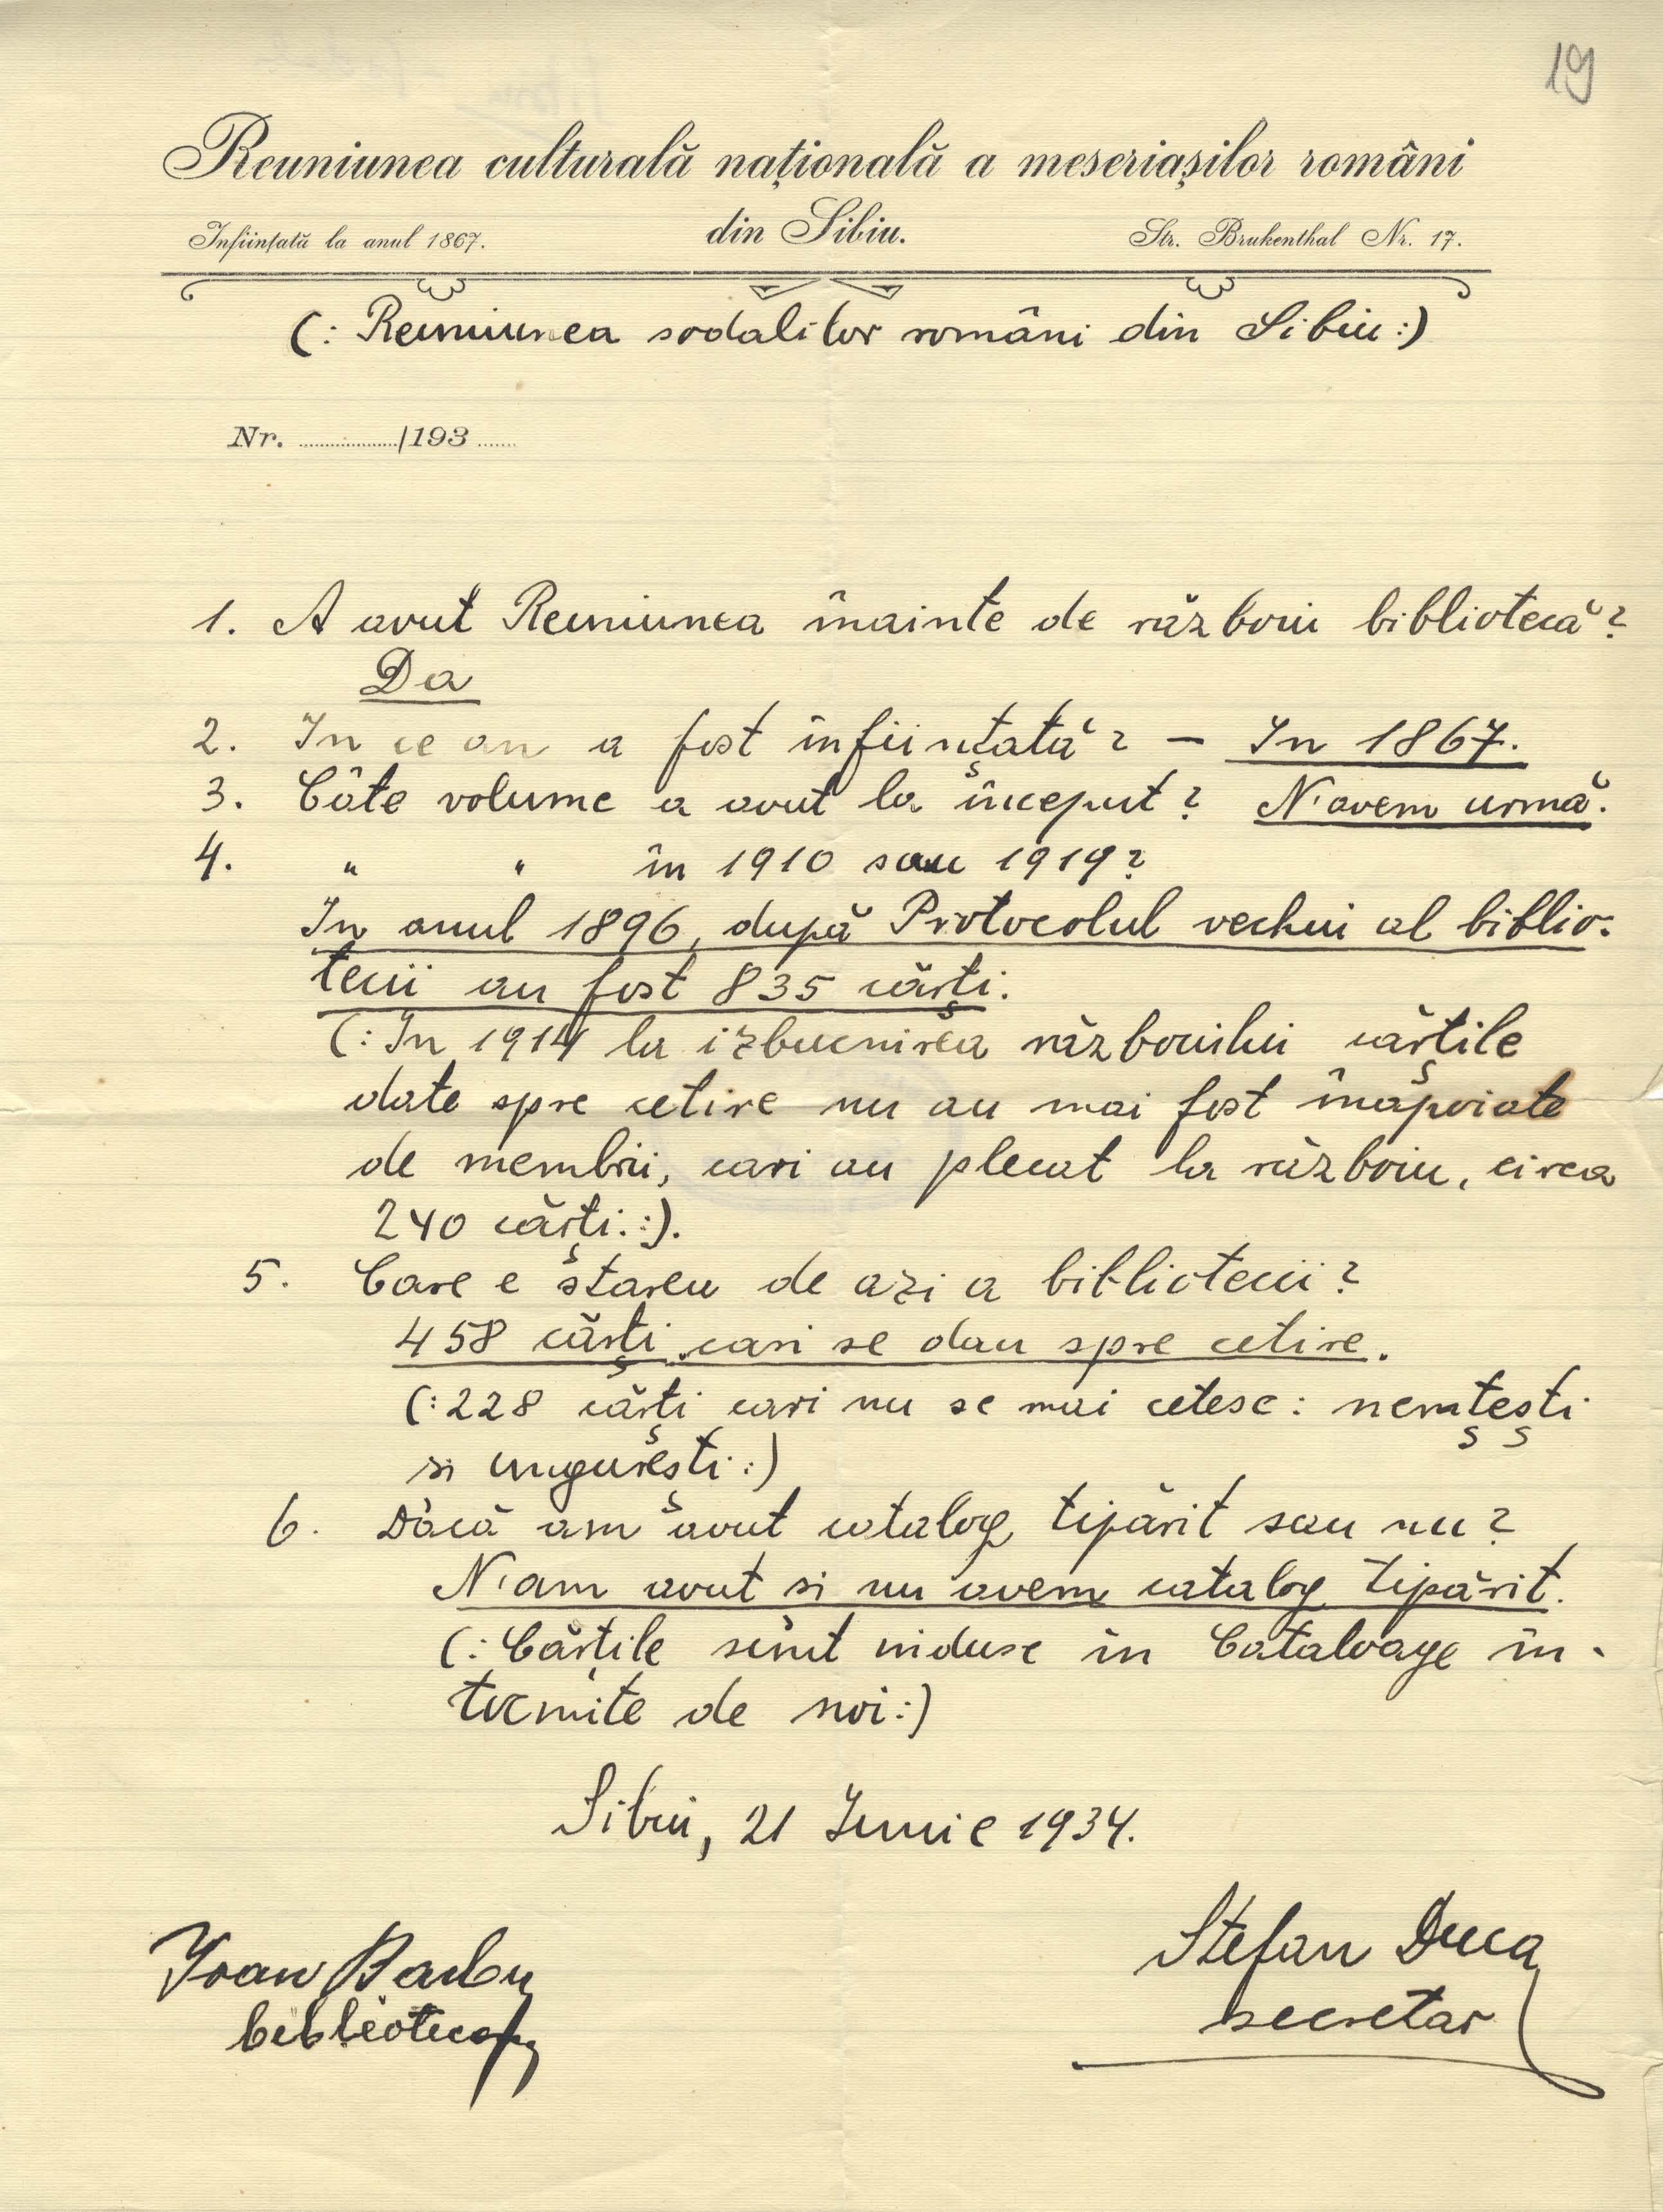 19
Reuniunea culturală națională a meseriașilor români
Inființată la anul 1867. din Sibiu. Str. Brukenthal Nr. 17.
(: Reuniunea sodalilor români din Sibiu :)
Nr. ........../193......
1. A avut Reuniunea înainte de războiu bibliotecă?
Da
2. In ce an a fost înființată? — In 1867.
3. Câte volume a avut la început? N'avem urmă.
4. " " în 1910 sau 1919?
In anul 1896, după Protocolul vechiu al biblio-
tecii au fost 835 cărți.
(: In 1914 la izbucnirea războiului cărțile
date spre cetire nu au mai fost înăpoiate
de membrii, cari au plecat la războiu, circa
240 cărți. :).
5. Care e starea de azi a bibliotecii?
458 cărți cari se dau spre cetire.
(: 228 cărți cari nu se mai cetesc: nemțești
si ungurești :)
6. Dacă am avut catalog tipărit sau nu?
N'am avut si nu avem catalog tipărit.
(: Cărțile sunt induse în Cataloage în-
tocmite de noi :)
Sibiu, 21 Iunie 1934.
Stefan Duca
secretar
Ioan Barbu
bibliotecar